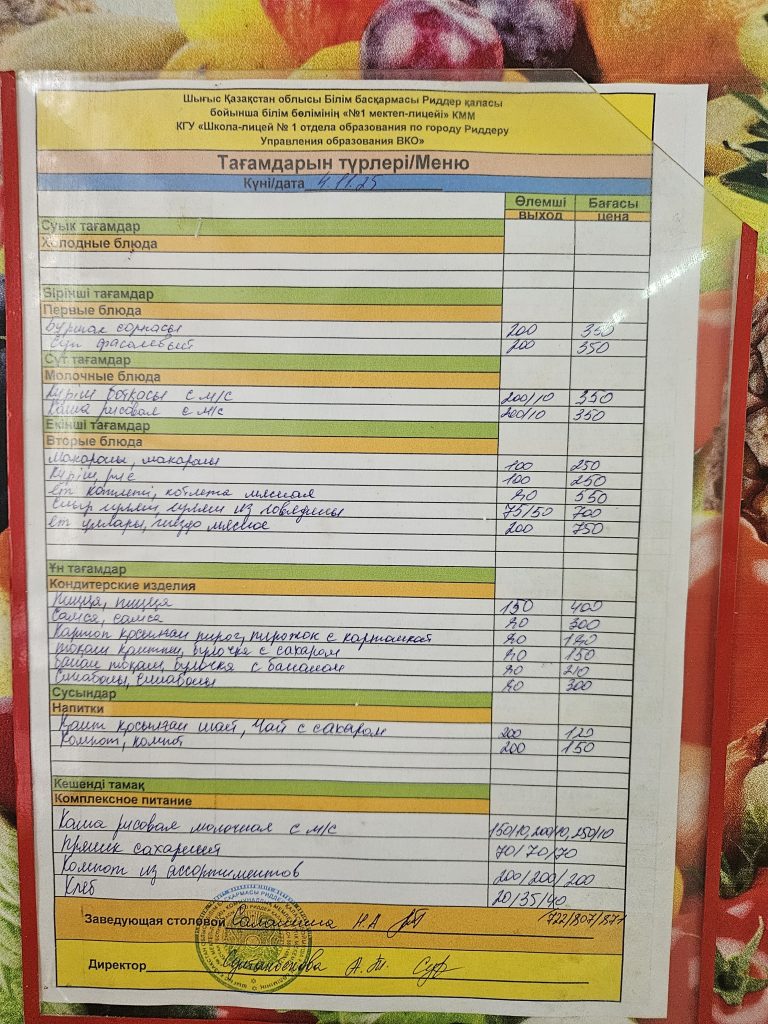 Шығыс Қазақстан облысы Білім басқармасы Риддер қаласы
бойынша білім бөлімінің «№1 мектеп-лицейі» КММ
КГУ «Школа-лицей № 1 отдела образования по городу Риддеру
Управления образования ВКО»
Тағамдарын түрлері/Меню
Күні/дата 4.11.25
Өлемші Бағасы
выход цена
Суык тағамдар
Холодные блюда
Бірінші тағамдар
Первые блюда
Бұршақ сорпасы 200 350
Суп фасолевый 200 350
Сүт тағамдар
Молочные блюда
Күріш ботқасы с м/с 200/10 350
Каша рисовая с м/с 200/10 350
Екінші тағамдар
Вторые блюда
Макароны, макароны 100 250
Күріш, рис 100 250
ет котлеті, котлета мясная 80 550
Сиыр гуляш, гуляш из говядины 75/50 700
ет ұялары, гнездо мясное 200 750
Ұн тағамдар
Кондитерские изделия
Пицца, пицца 150 400
Самса, самса 80 300
Картоп қосылған пирог, пирожок с картошкой 80
тоқаш қантпен, булочка с сахаром 80 150
банан тоқаш, булочка с бананом 80 210
Синабоны, синабоны 80 300
Сусындар
Напитки
Қант қосылған шай, Чай с сахаром 200 120
Компот, компот 200 150
Кешенді тамақ
Комплексное питание
Каша рисовая молочная с м/с 150/10, 200/10, 250/10
Пряник сахарный 70/70/70
Компот из ассортиментов 200/200/200
Хлеб 20/35/40
722/807/871
Заведующая столовой Н.А
Директор А.Т.